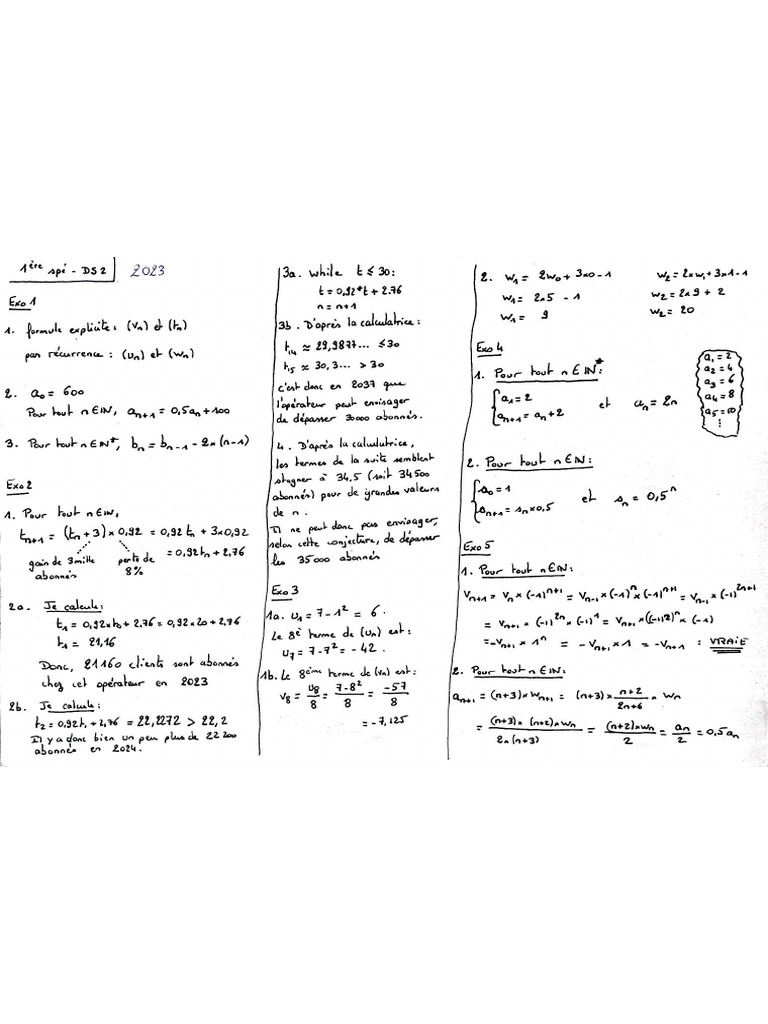 1ère spé - DS2 2023
Exo 1
1. formule explicite : (Vn) et (tn)
par récurrence : (Un) et (Wn)
2. a₀ = 600
Pour tout n∈ℕ, aₙ₊₁ = 0,5aₙ + 100
3. Pour tout n∈ℕ*, bₙ = bₙ₋₁ - 2×(n-1)
Exo 2
1. Pour tout n∈ℕ,
tₙ₊₁ = (tₙ+3)×0,92 = 0,92tₙ + 3×0,92
= 0,92tₙ + 2,76
gain de 3 mille abonnés
perte de 8%
2a. Je calcule :
t₁ = 0,92×t₀ + 2,76 = 0,92×20 + 2,76
t₁ = 21,16
Donc, 21160 clients sont abonnés
chez cet opérateur en 2023
2b. Je calcule :
t₂ = 0,92t₁ + 2,76 = 22,2272 > 22,2
Il y a donc bien un peu plus de 22 200
abonnés en 2024.
3a. While t ≤ 30 :
t = 0,92*t + 2.76
n = n+1
3b. D'après la calculatrice :
t₁₄ ≈ 29,9877... ≤ 30
t₁₅ ≈ 30,3... > 30
c'est donc en 2037 que
l'opérateur peut envisager
de dépasser 30000 abonnés.
4. D'après la calculatrice,
les termes de la suite semblent
stagner à 34,5 (soit 34500
abonnés) pour de grandes valeurs
de n.
Il ne peut donc pas envisager,
selon cette conjecture, de dépasser
les 35000 abonnés
Exo 3
1a. U₁ = 7 - 1² = 6.
Le 8è terme de (Un) est :
U₇ = 7 - 7² = -42.
1b. Le 8ème terme de (Vn) est :
V₈ = U₈/8 = (7-8²)/8 = -57/8
= -7,125
2. W₁ = 2W₀ + 3×0 - 1
W₁ = 2×5 - 1
W₁ = 9
W₂ = 2×W₁ + 3×1 - 1
W₂ = 2×9 + 2
W₂ = 20
Exo 4
1. Pour tout n∈ℕ* :
{a₁ = 2
aₙ₊₁ = aₙ + 2 et aₙ = 2n
a₁ = 2
a₂ = 4
a₃ = 6
a₄ = 8
a₅ = 10
⋮
2. Pour tout n∈ℕ :
{s₀ = 1
sₙ₊₁ = sₙ×0,5 et sₙ = 0,5ⁿ
Exo 5
1. Pour tout n∈ℕ :
Vₙ₊₁ = Vₙ×(-1)ⁿ⁺¹ = Vₙ₋₁×(-1)ⁿ×(-1)ⁿ⁺¹ = Vₙ₋₁×(-1)²ⁿ⁺¹
= Vₙ₊₁×(-1)²ⁿ×(-1)¹ = Vₙ₊₁×((-1)²)ⁿ×(-1)
= -Vₙ₊₁×1ⁿ = -Vₙ₊₁×1 = -Vₙ₊₁ : VRAIE
2. Pour tout n∈ℕ :
aₙ₊₁ = (n+3)×Wₙ₊₁ = (n+3)×(n+2)/(2n+6)×Wₙ
= ((n+3)×(n+2)×Wₙ)/(2×(n+3)) = ((n+2)×Wₙ)/2 = aₙ/2 = 0,5aₙ